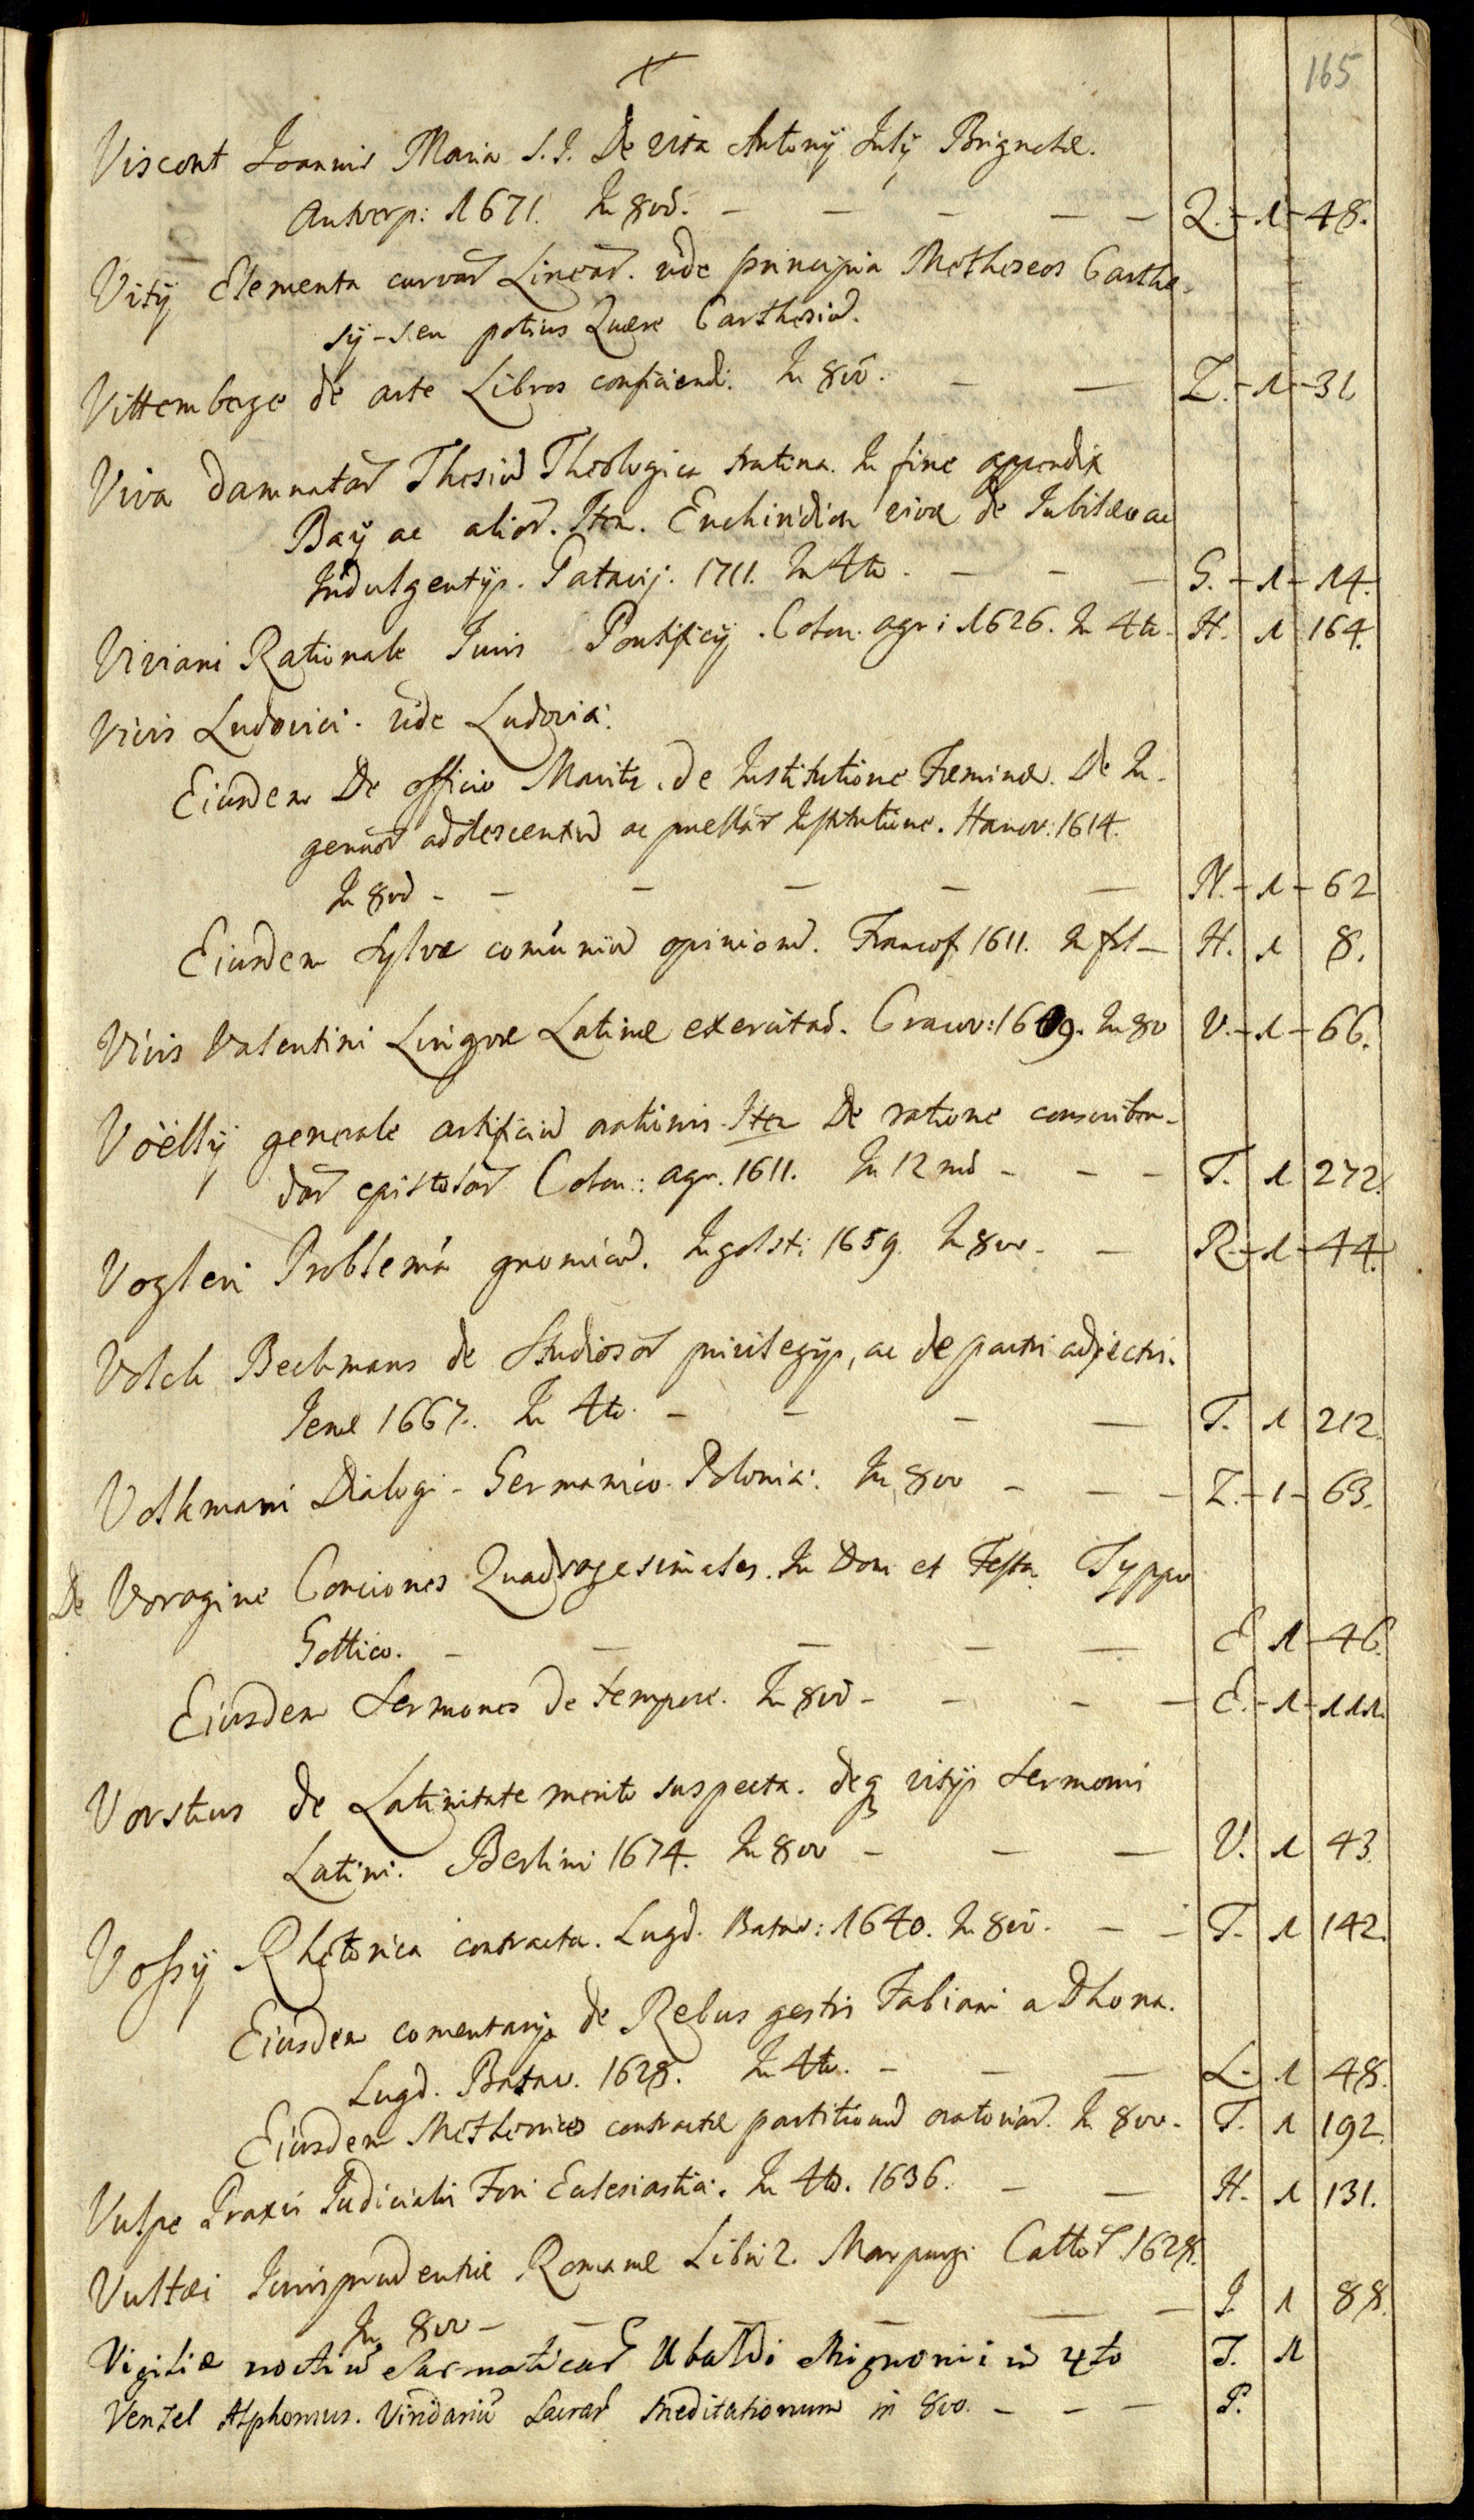 165
Viscont Joannis Maria S. J. De vita Antonij Julij Brignolæ.
Antverp: 1671. In 8vo. – – – – – Q. – 1 – 48.
Vitij Elementa curvar Linear. vide principia Matheseos Carthe-
sij – seu potius Quære Carthesiu.
Vittemberge de arte Libros conficiendi. In 8vo. – – Z. – 1 – 31
Viva damnatar Thesiu Theologica trutina. In fine appendix
Baij ac alior. Item. Enchiridion eiusd de Jubilæo ac
Indulgentijs. Patavij. 1711. In 4to. – – – G. – 1 – 14.
Viviani Rationale Juris Pontificij. Colon. agri: 1626. In 4to. H. 1 164.
Vivis Ludovici. vide Ludovici.
Eiusdem De officio Mariti. de Institutione Fæminæ. De In-
genuar adolescentu ac puellar Institutione. Hanov: 1614.
In 8vo – – – – – – N. – 1 – 62
Eiusdem Sylvæ comúniu opinionu. Francof. 1611. In fol – H. 1 8.
Vivis Valentini Lingvæ Latinæ exercitao. Cracov: 1609. In 8vo V. – 1 – 66.
Voëlly generale artificiu orationis. Item De ratione conscriben-
dar epistolar Colon: agr. 1611. In 12mo – – – T. 1 272.
Vogleri Problema gnomicu. Ingolst: 1659. In 8vo. – R. – 1 – 44.
Volck Beckmans de Studiosor privilegijs, ac de pactis adjectis.
Jenæ 1667. In 4to. – – – – T. 1 212.
Volkmani Dialogi – Germanico. Polonici. In 8vo – – – Z. – 1 – 63.
De Voragine Conciones Quadragesimales. In Dom et Festa. Typpo
Gottico. – – – – – E 1 – 46.
Eiusdem Sermones de tempore. In 8vo – – – – E. – 1 – 111.
Vorstius de Latinitate merito suspecta. deq vitijs Sermonis
Latini. Berlini 1674. In 8vo – – – V. 1 43
Vossij Rhetorica contracta. Lugd. Batav: 1640. In 8vo. – – T. 1 142.
Eiusdem comentarijs de Rebus gestis Fabiani a Dhona.
Lugd. Batav. 1628. In 4to. – – – L. 1 48.
Eiusdem Rhetorices contractæ partitionu oratoriar. In 8vo. – T. 1 192.
Vulpe Praxis Judicialis Fori Eclesiastici. In 4to. 1636. – – H. 1 131.
Vultæi Jurisprudentiæ Romanæ Libri 2. Marpurgi Cattor 1628.
In 8vo – – – – – – J. 1 88.
Vigiliæ noctiu Sarmaticar Ubaldi Mignonii in 4to T. 1
Venzel Alphonsus. Viridariu Sacrar meditationum in 8vo. – – – P.